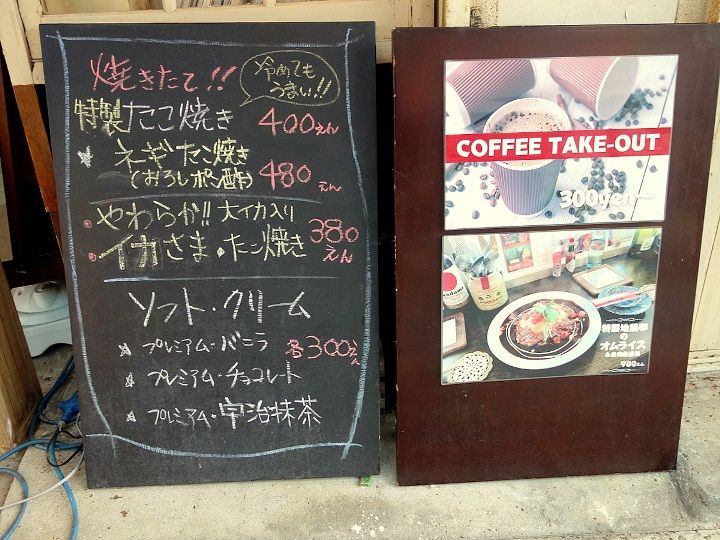 焼きたて!!
冷めても
うまい!!
特製たこ焼き 400えん
ネーギたこ焼き
(おろしポン酢) 480えん
やわらか!! 大イカ入り
イカさま・たこ焼き 380えん
ソフト・クリーム
プレミアム・バニラ 各300えん
プレミアム・チョコレート
プレミアム・宇治抹茶
COFFEE TAKE-OUT
300yen~
特製地鶏卵
の
オムライス
980えん